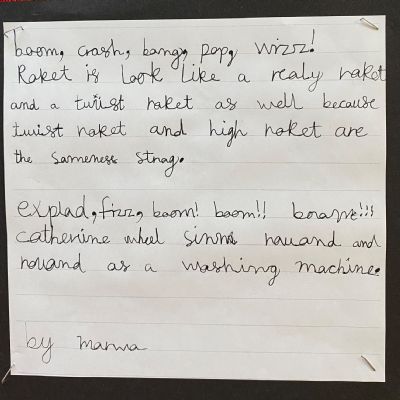 boom, crash, bang, pop, wizz!
Raket is look like a realy raket
and a twist raket as well because
twist raket and high raket are
the sameness strag.
explad, fizz, boom! boom!! !!!
catherine wheel sinni rauand and
rouand as a washing machine.
by marwa